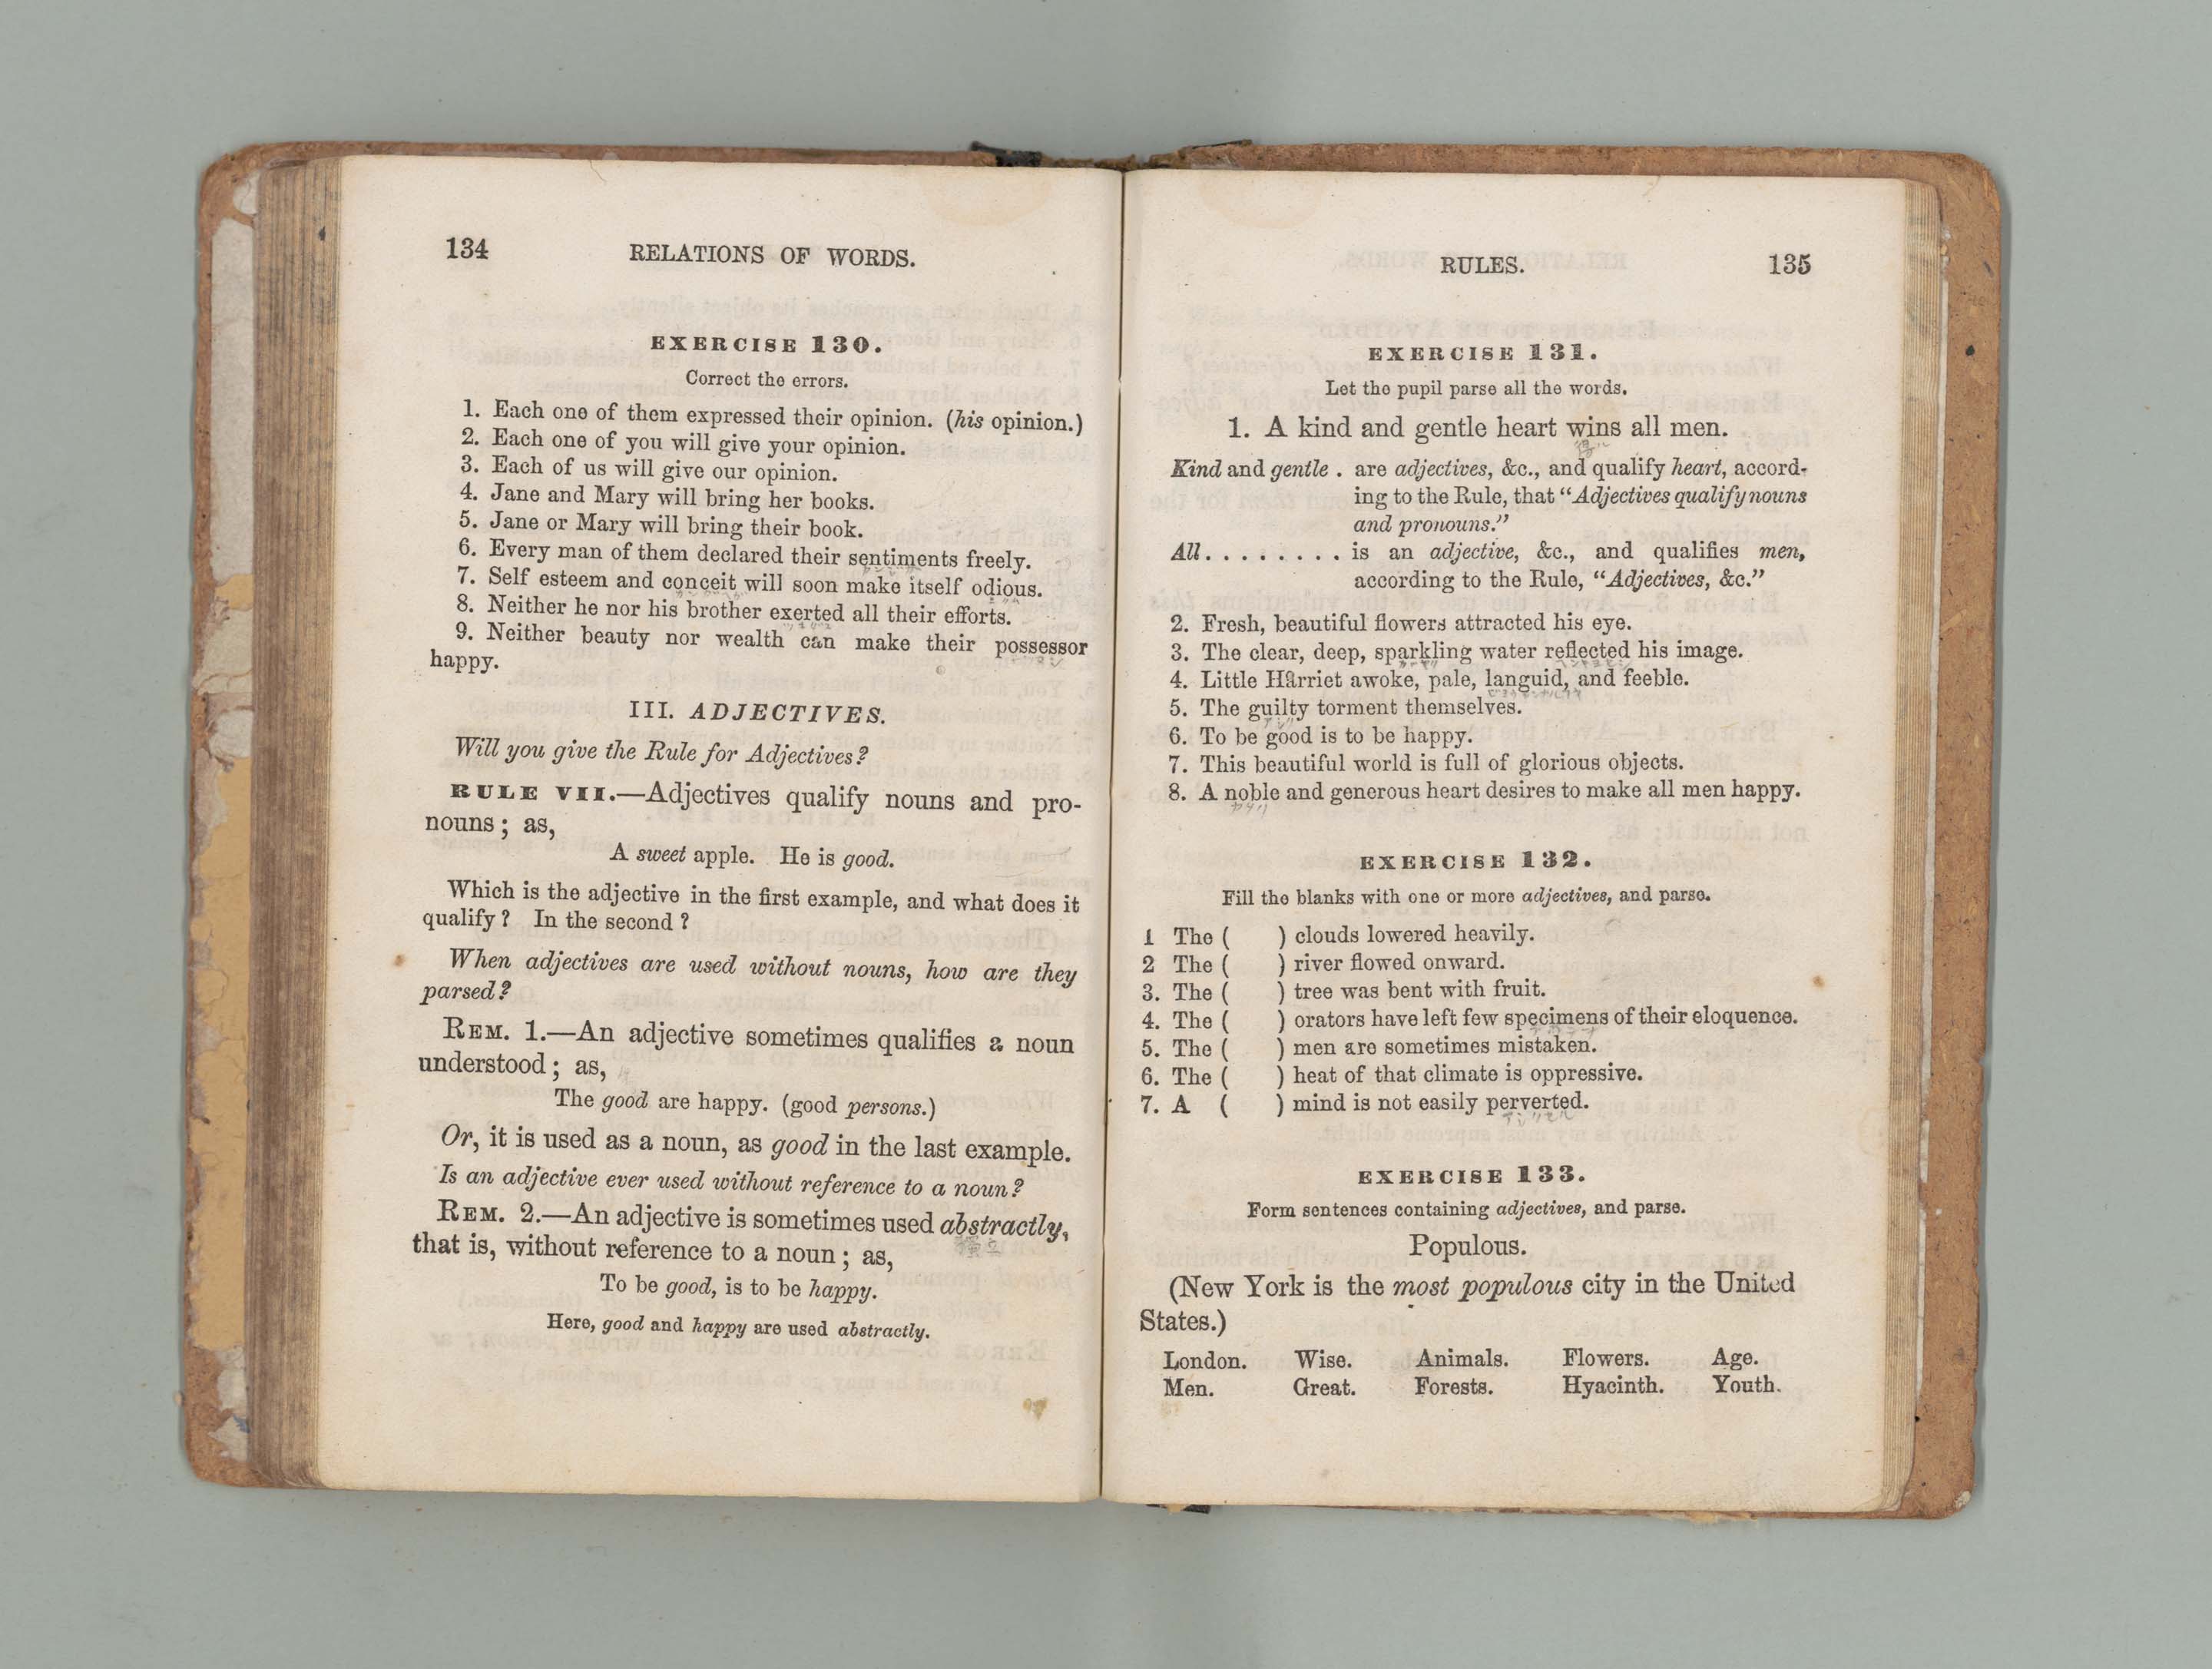 134 RELATIONS OF WORDS.
EXERCISE 130.
Correct the errors.
1. Each one of them expressed their opinion. (his opinion.)
2. Each one of you will give your opinion.
3. Each of us will give our opinion.
4. Jane and Mary will bring her books.
5. Jane or Mary will bring their book.
6. Every man of them declared their sentiments freely.
7. Self esteem and conceit will soon make itself odious.
8. Neither he nor his brother exerted all their efforts.
9. Neither beauty nor wealth can make their possessor
happy.
III. ADJECTIVES.
Will you give the Rule for Adjectives?
RULE VII.—Adjectives qualify nouns and pro-
nouns; as,
A sweet apple. He is good.
Which is the adjective in the first example, and what does it
qualify? In the second?
When adjectives are used without nouns, how are they
parsed?
REM. 1.—An adjective sometimes qualifies a noun
understood; as,
The good are happy. (good persons.)
Or, it is used as a noun, as good in the last example.
Is an adjective ever used without reference to a noun?
REM. 2.—An adjective is sometimes used abstractly,
that is, without reference to a noun; as,
To be good, is to be happy.
Here, good and happy are used abstractly.
RULES. 135
EXERCISE 131.
Let the pupil parse all the words.
1. A kind and gentle heart wins all men.
Kind and gentle . are adjectives, &c., and qualify heart, accord-
ing to the Rule, that "Adjectives qualify nouns
and pronouns."
All. . . . . . . . is an adjective, &c., and qualifies men,
according to the Rule, "Adjectives, &c."
2. Fresh, beautiful flowers attracted his eye.
3. The clear, deep, sparkling water reflected his image.
4. Little Harriet awoke, pale, languid, and feeble.
5. The guilty torment themselves.
6. To be good is to be happy.
7. This beautiful world is full of glorious objects.
8. A noble and generous heart desires to make all men happy.
EXERCISE 132.
Fill the blanks with one or more adjectives, and parse.
1 The ( ) clouds lowered heavily.
2 The ( ) river flowed onward.
3. The ( ) tree was bent with fruit.
4. The ( ) orators have left few specimens of their eloquence.
5. The ( ) men are sometimes mistaken.
6. The ( ) heat of that climate is oppressive.
7. A ( ) mind is not easily perverted.
EXERCISE 133.
Form sentences containing adjectives, and parse.
Populous.
(New York is the most populous city in the United
States.)
London. Wise. Animals. Flowers. Age.
Men. Great. Forests. Hyacinth. Youth.